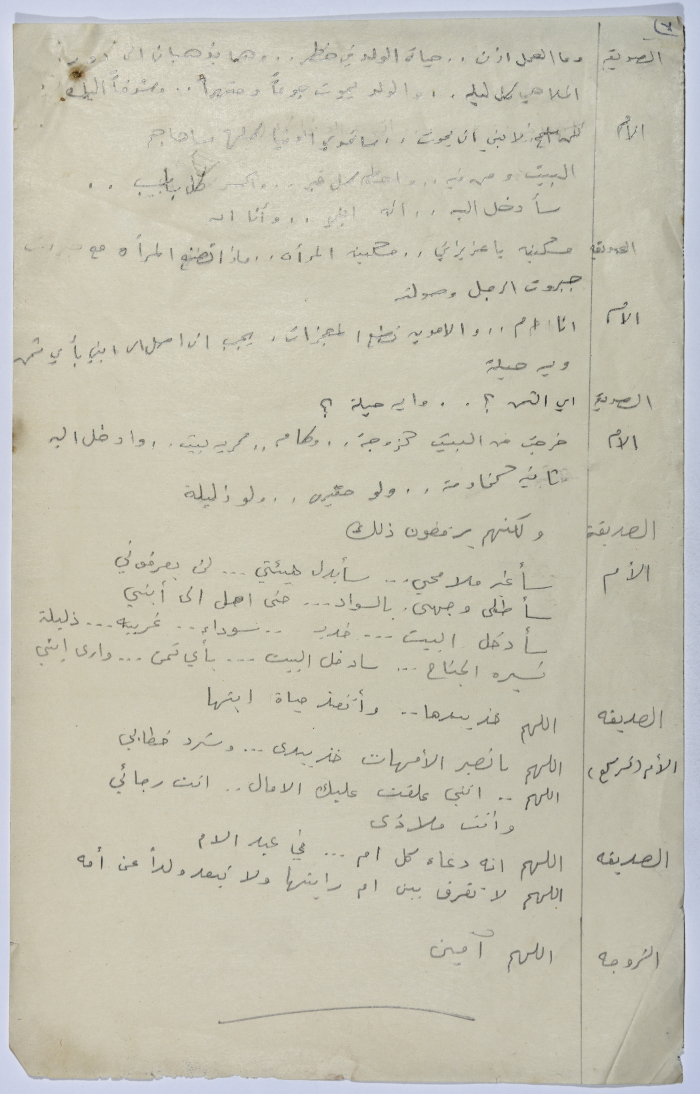 الصديقة وما العمل اذن .. حياة الولد في خطر .. وهما يذهبان الى
الملاهي كل ليلة .. والولد يموت جوعاً و .. وشوقاً اليك
الأم لا ابني ان يموت
البيت ومن فيه .. كل باب ..
سأدخل اليه .. انه ابني .. وأنا امه
الصديقة مسكينه يا عزيزتي .. مسكينه المرأه .. ماذا تصنع المرأه مع
جبروت الرجل وصولته
الأم انا ام .. والامومه تصنع المعجزات . يجب ان اصل الى ابني بأي ثمن
وبأيه حيلة
الصديقة اي الثمن ؟ .. وايه حيلة ؟
الأم خرجت من البيت كزوجة .. وكأم .. بيت .. وادخل اليه
ثانيه كخادمة .. ولو حقيره .. ولو ذليلة
الصديقة ولكنهم يرفضون ذلك
الأم سأغير ملامحي ... سأبدل هيئتي ... لن يعرفوني
سأطلى وجهى بالسواد ... حتى اصل الى أبني
سأدخل البيت ... .. سوداء .. غريبه ... ذليلة
كسيره الجناح ... سادخل البيت ... بأي ثمن ... وارى إبني
الصديقه اللهم خذ بيدها .. وأنقذ حياة ابنها
الأم (تركع) اللهم يا نصير الأمهات خذ بيدى ...
اللهم .. انني علقت عليك الامال .. انت رجائي
وأنت ملاذى
الصديقه اللهم انه دعاء كل ام ... في عيد الام
اللهم لا تفرق بين ام وابنها ولا تبعد ولداً عن أمه
الزوجه اللهم آمين